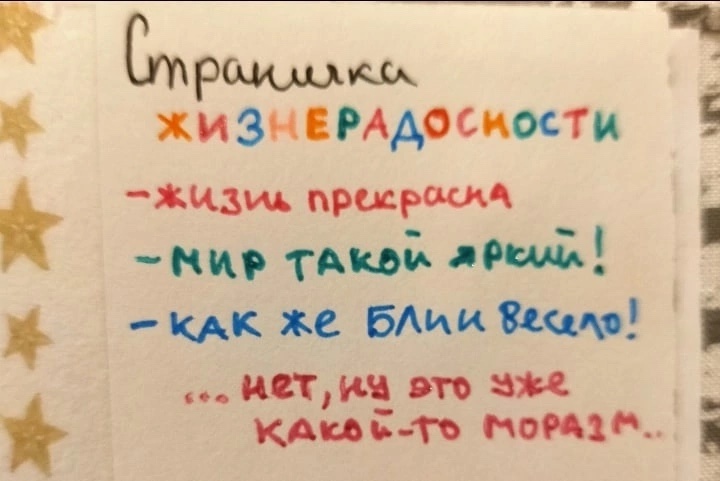 Страничка
ЖИЗНЕРАДОСНОСТИ
-жизнь прекрасна
-мир такой яркий!
-как же блин весело!
... нет, ну это уже
какой-то моразм..